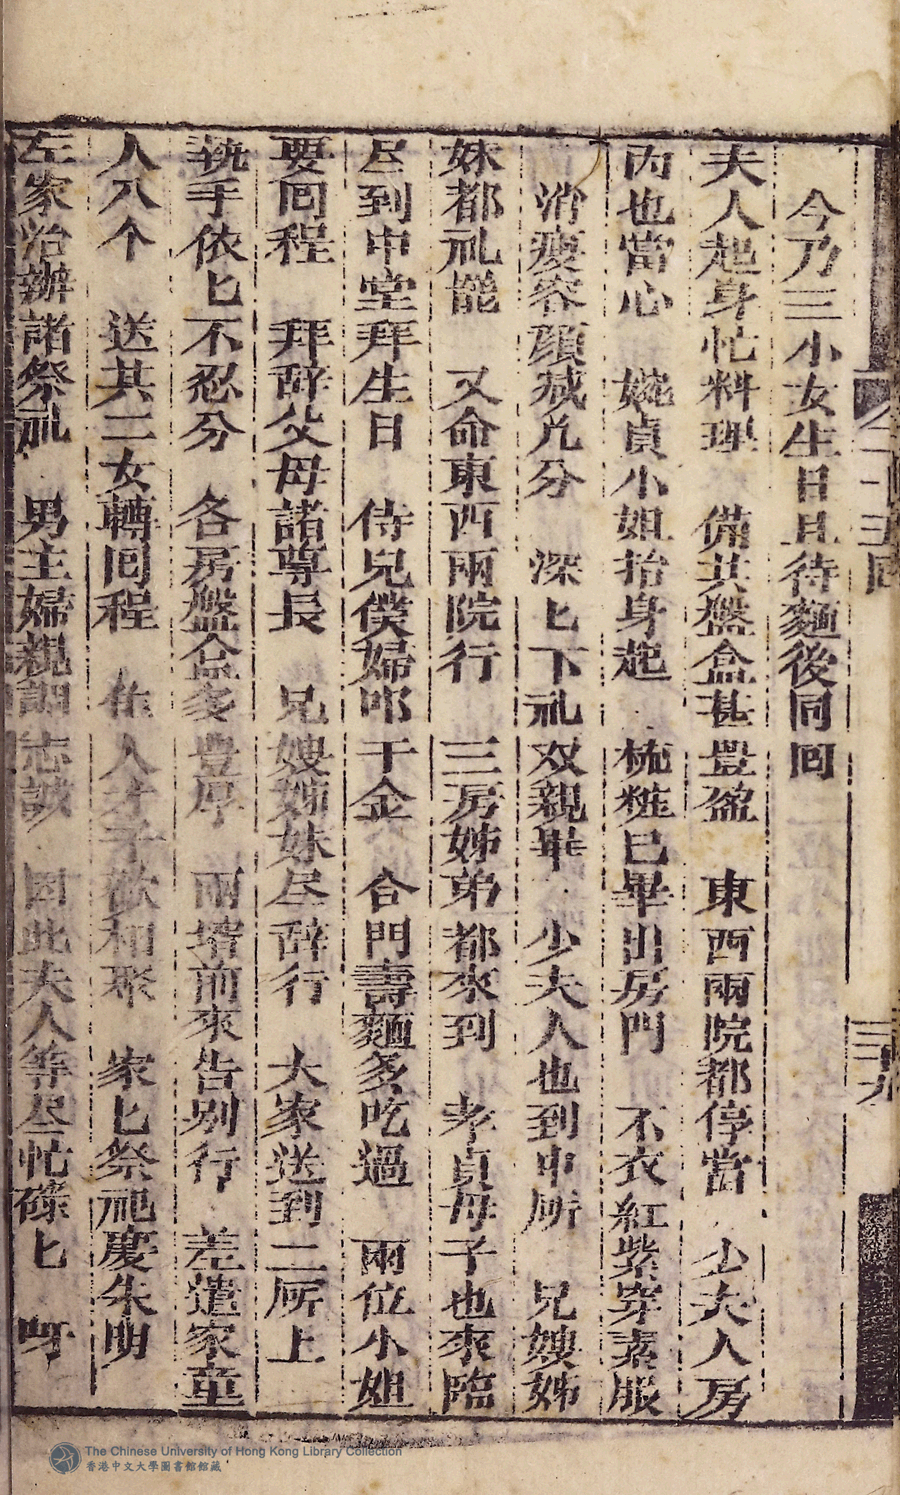 今乃三小女生日且待麵後同囘
夫人起身忙料理 備其盤盒甚豊盈 東西兩院都停當 少夫人房
內也當心 婉貞小姐抬身起 梳粧已畢出房門 不衣紅紫穿素服
消瘦容顔减几分 深匕下礼双親畢 少夫人也到中所 兄嫂姊
妹都礼罷 又命東西兩院行 三房姊弟都來到 孝貞母子也來臨
尽到中堂拜生日 侍兒僕婦叩千金 合門壽麵多吃過 兩位小姐
要囘程 拜辞父母諸尊長 兄嫂姊妹尽辞行 大家送到二所上
執手依匕不忍分 各房盤盒多豊厚 兩壻前來告别行 差遣家童
人八个 送其二女轉囘程 佳人才子歡和聚 家匕祭祀慶朱明
左家治辦諸祭礼 男主婦親調志誠 因此夫人等尽忙碌匕 呀
二十五囘
三十九
The Chinese University of Hong Kong Library Collection
香港中文大學圖書館館藏